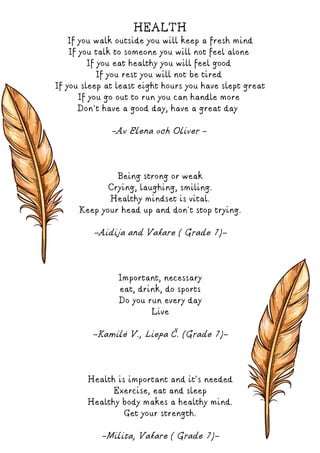 HEALTH
If you walk outside you will keep a fresh mind
If you talk to someone you will not feel alone
If you eat healthy you will feel good
If you rest you will not be tired
If you sleep at least eight hours you have slept great
If you go out to run you can handle more
Don't have a good day, have a great day
-Av Elena och Oliver -
Being strong or weak
Crying, laughing, smiling.
Healthy mindset is vital.
Keep your head up and don't stop trying.
-Aidija and Vakare ( Grade 7)-
Important, necessary
eat, drink, do sports
Do you run every day
Live
-Kamilė V., Liepa Č. (Grade 7)-
Health is important and it's needed
Exercise, eat and sleep
Healthy body makes a healthy mind.
Get your strength.
-Milita, Vakare ( Grade 7)-